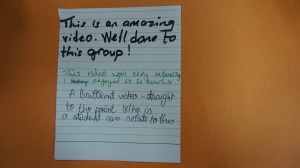 This is an amazing
video. Well done to
this group!
This video was very
I enjoyed it so much
A Brilliant video - straight
to the point. Who is
a student can relate to this